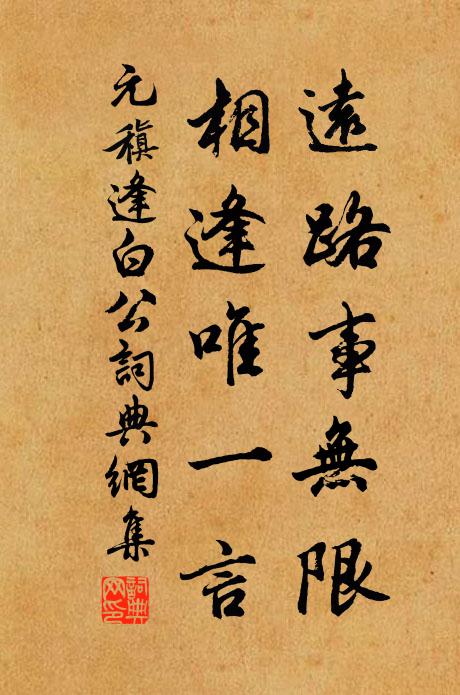 遠路事無限
相逢唯一言
元稹逢白公詞典網集
詞典网印